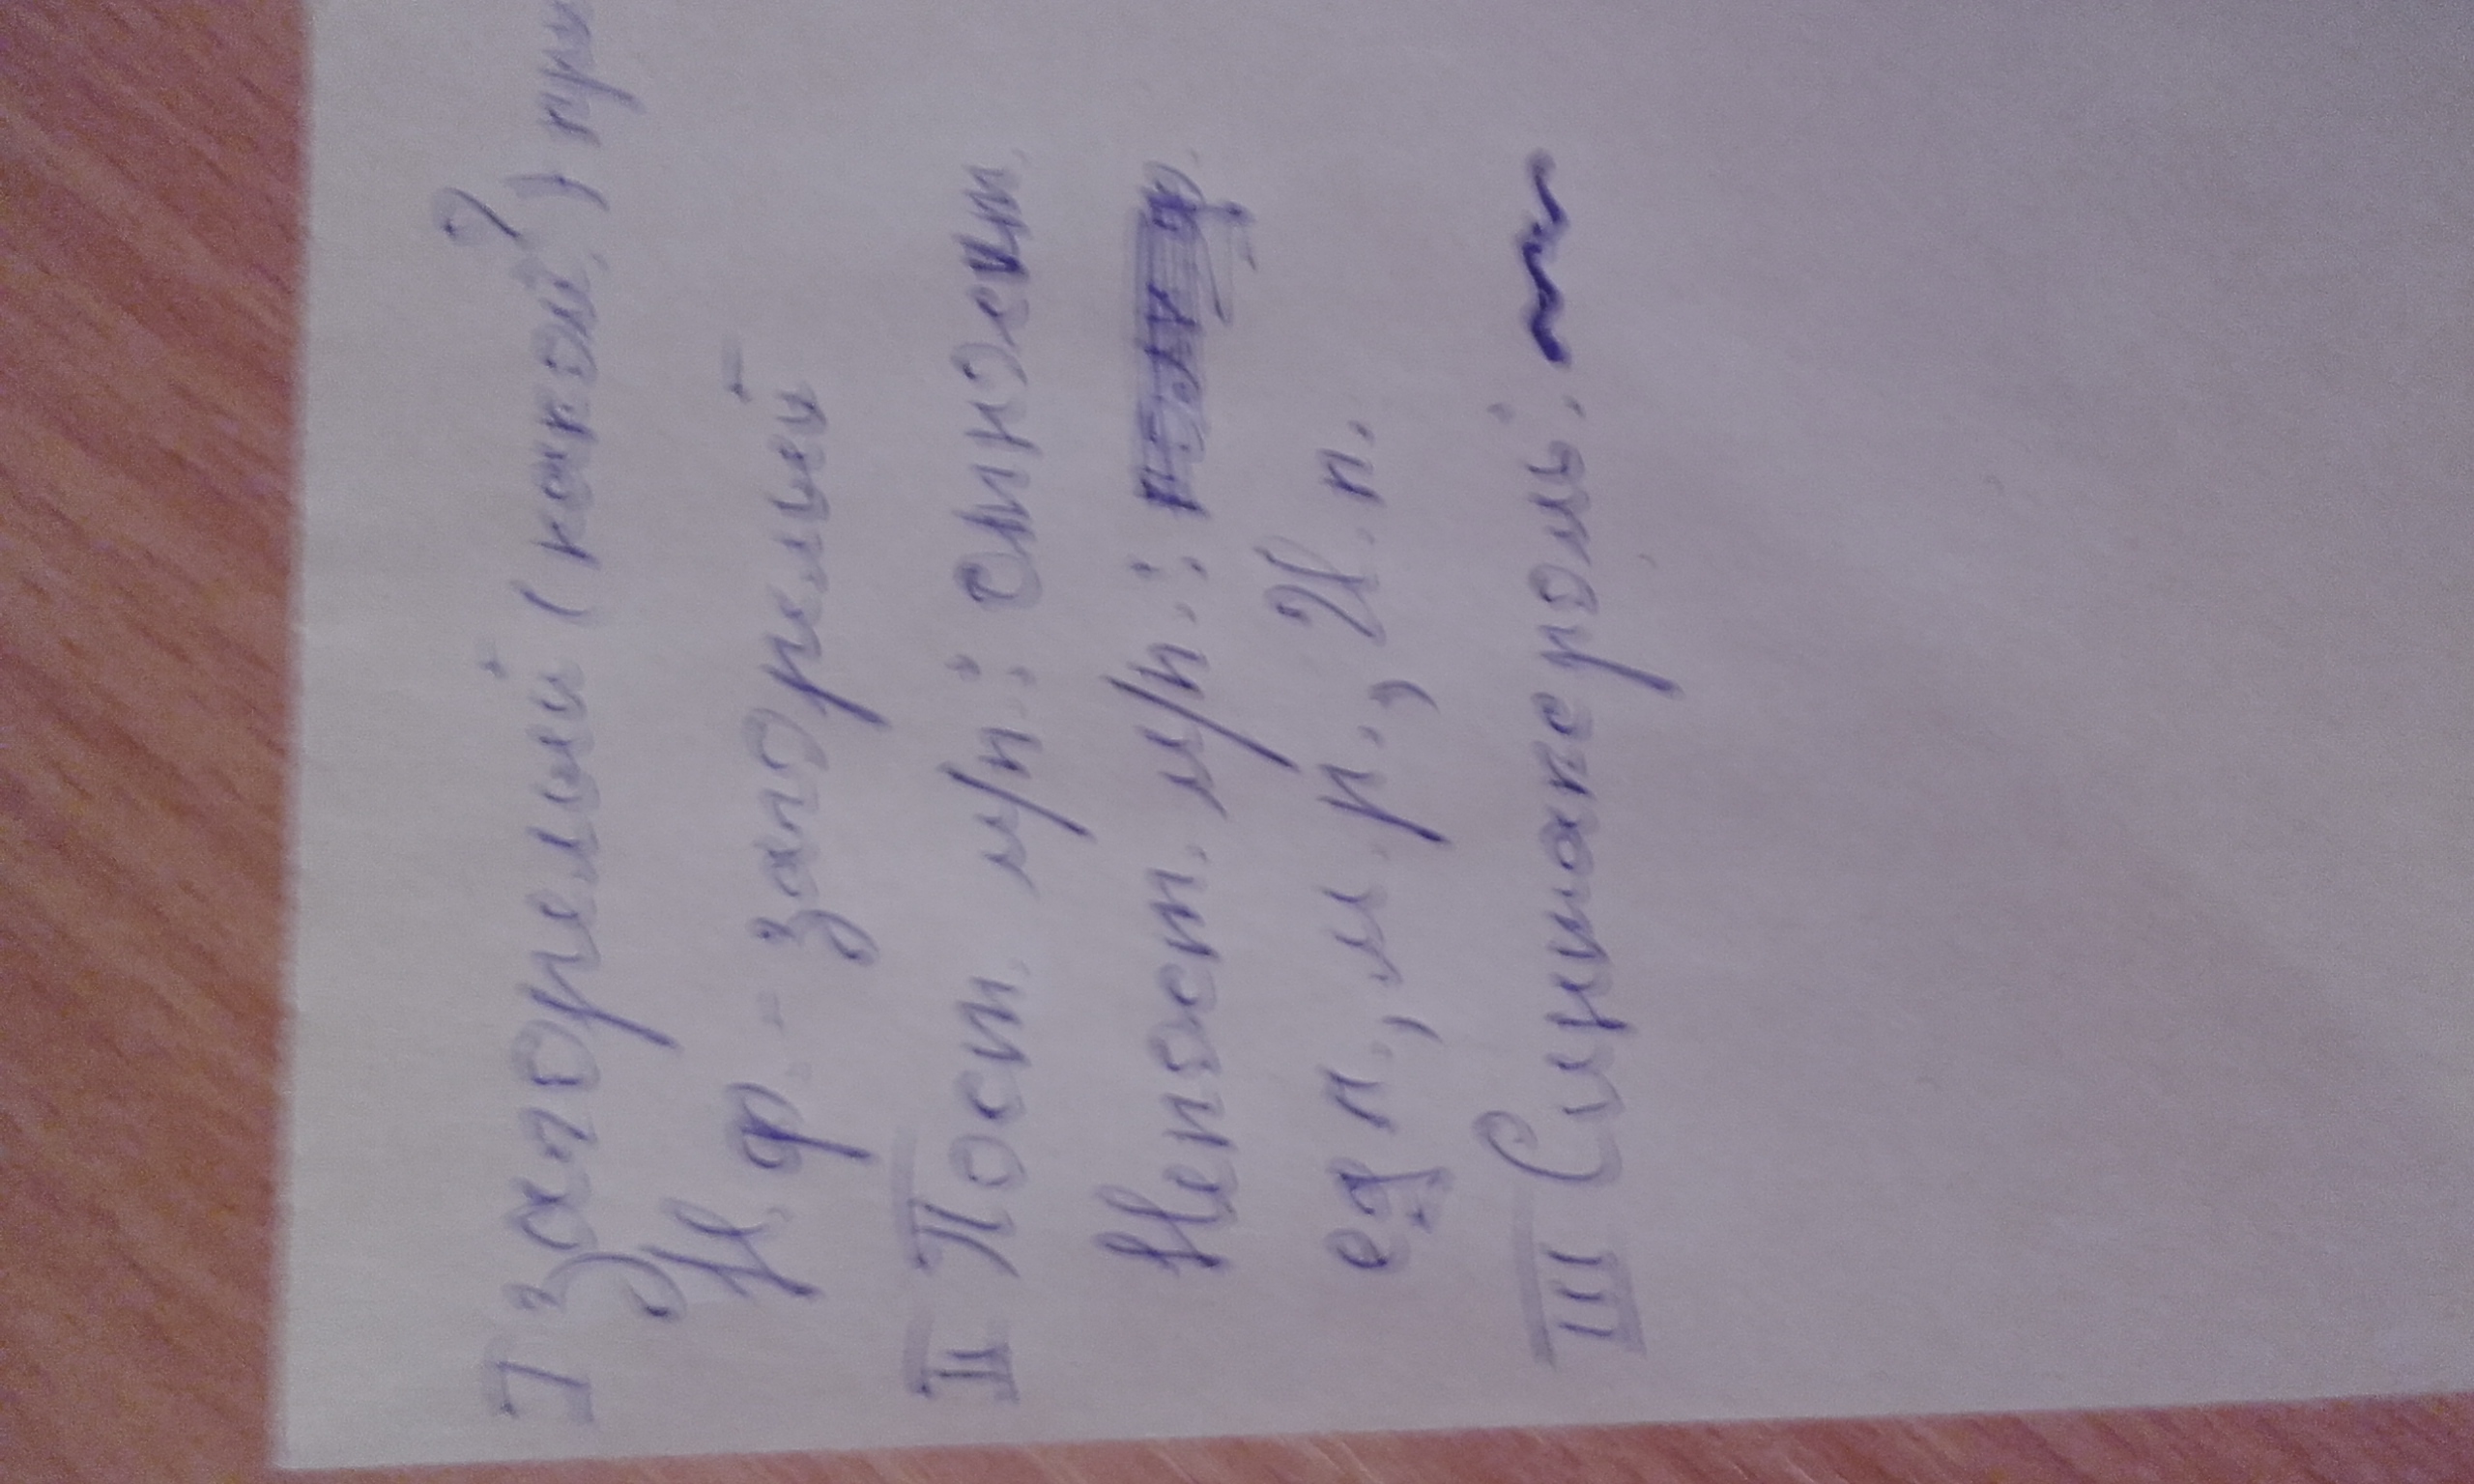 I Загорелый (какой?) при
Н.ф. - загорелый
II Пост. м/п.: относит.
Непост. м/п.:
ед ч., м.р., И.п.
III Синтакс роль: